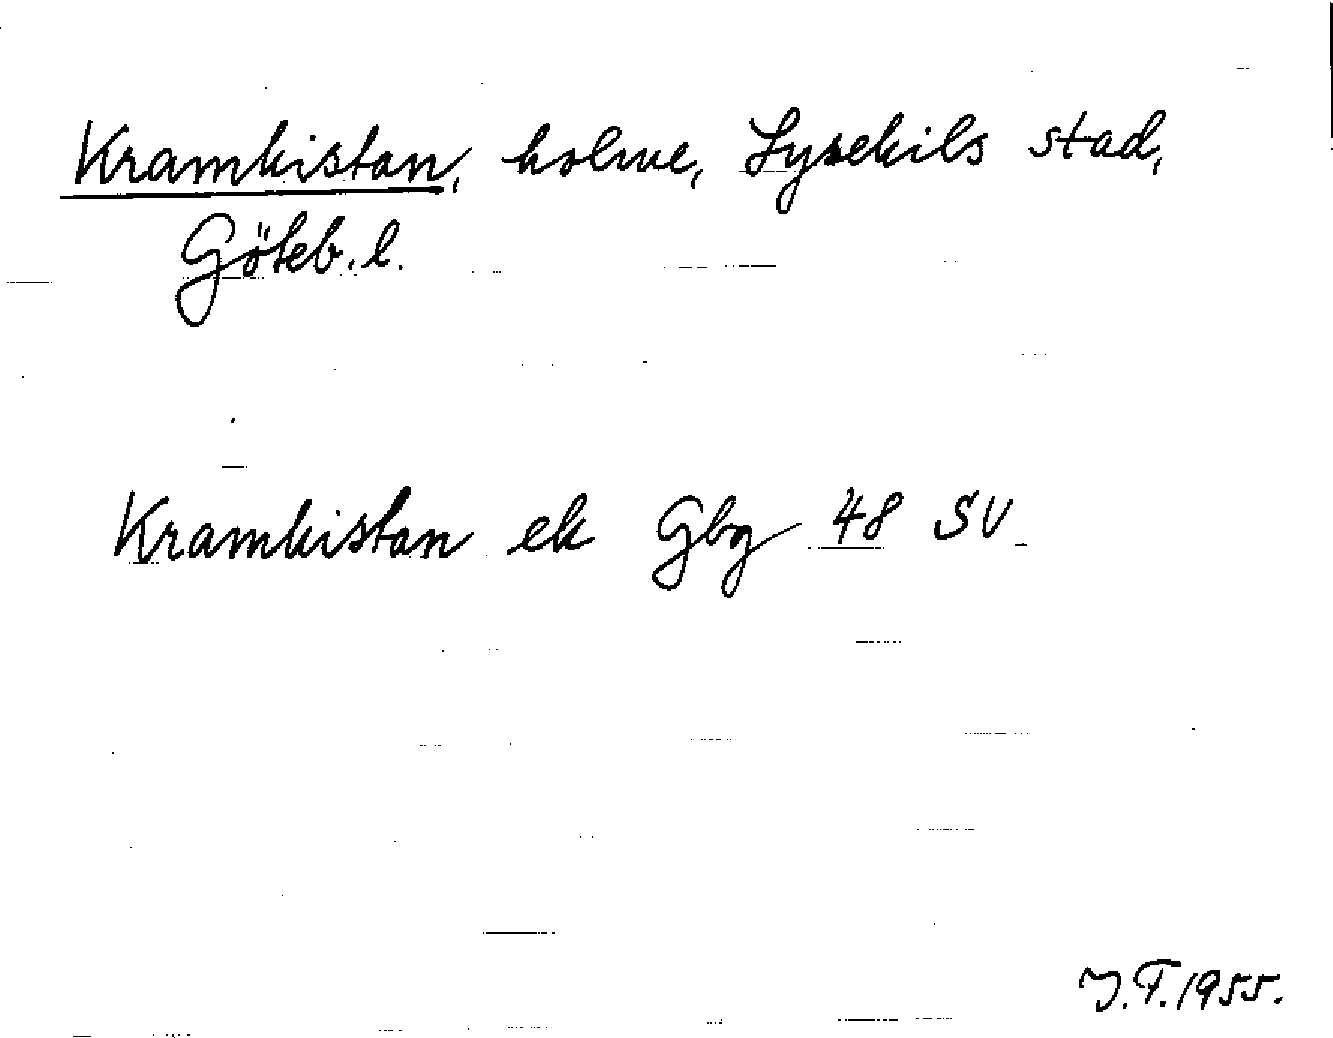 Kramkistan, holme, Lysekils stad,
Göteb. l.
Kramkistan ek Gbg 48 SV
J.F. 1955.